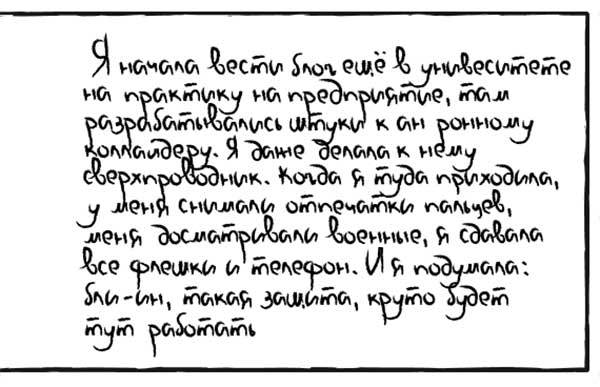 Я начала вести блог ещё в унивеситете
на практику на предприятие, там
разрабатывались штуки к ан ронному
коллайдеру. Я даже делала к нему
сверхпроводник. Когда я туда приходила,
у меня снимали отпечатки пальцев,
меня досматривали военные, я сдавала
все флешки и телефон. И я подумала:
бли-ин, такая защита, круто будет
тут работать